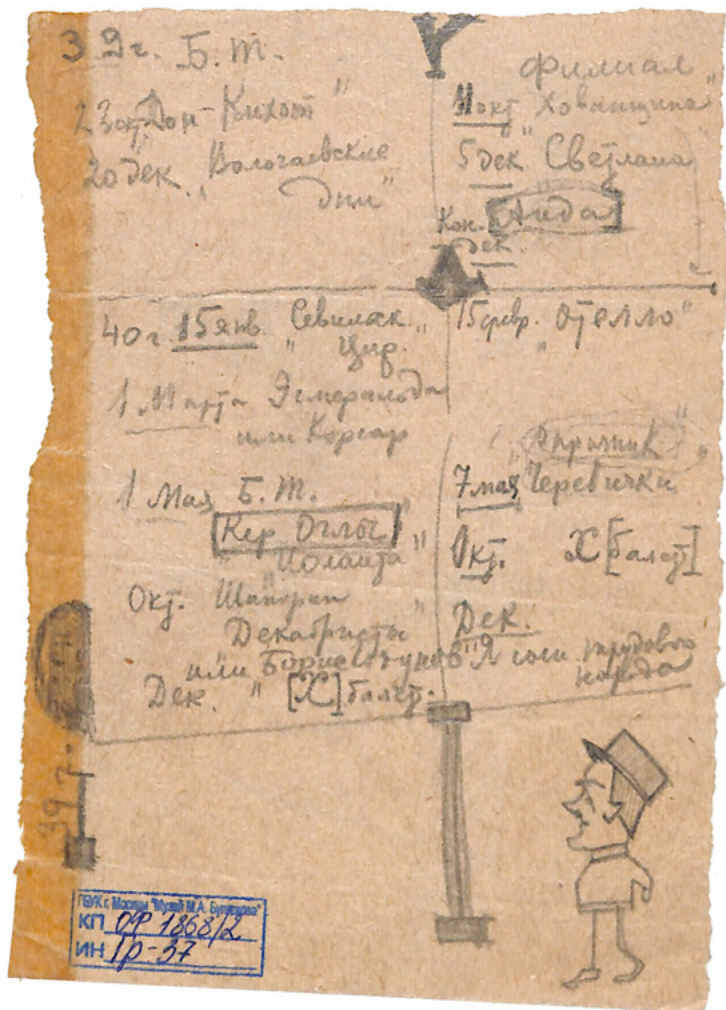 39г. Б.Т.
23 окт. Дон-Кихот"
20 дек. "Волочаевские
дни"
Филиал
11 окт. "Хованщина"
5 дек. "Светлана"
Кон. дек. [Аида]
40г. 15 янв. Севильск.
" Цир."
1 Марта Эсмеральда
или Корсар
1 Мая Б.Т.
Кер Оглы"
"Иоланта"
Окт. Шапорин
Декабристы"
или Борис Годунов"
Дек. " [X] балет.
15 февр. "Отелло"
"Опричник"
7 мая Черевички
Окт. X [балет]
Дек.
"Я сын трудового
народа
39 г.
ГБУК г. Москвы "Музей М.А. Булгакова"
КП ОФ 1868/2
ИН Гр-37